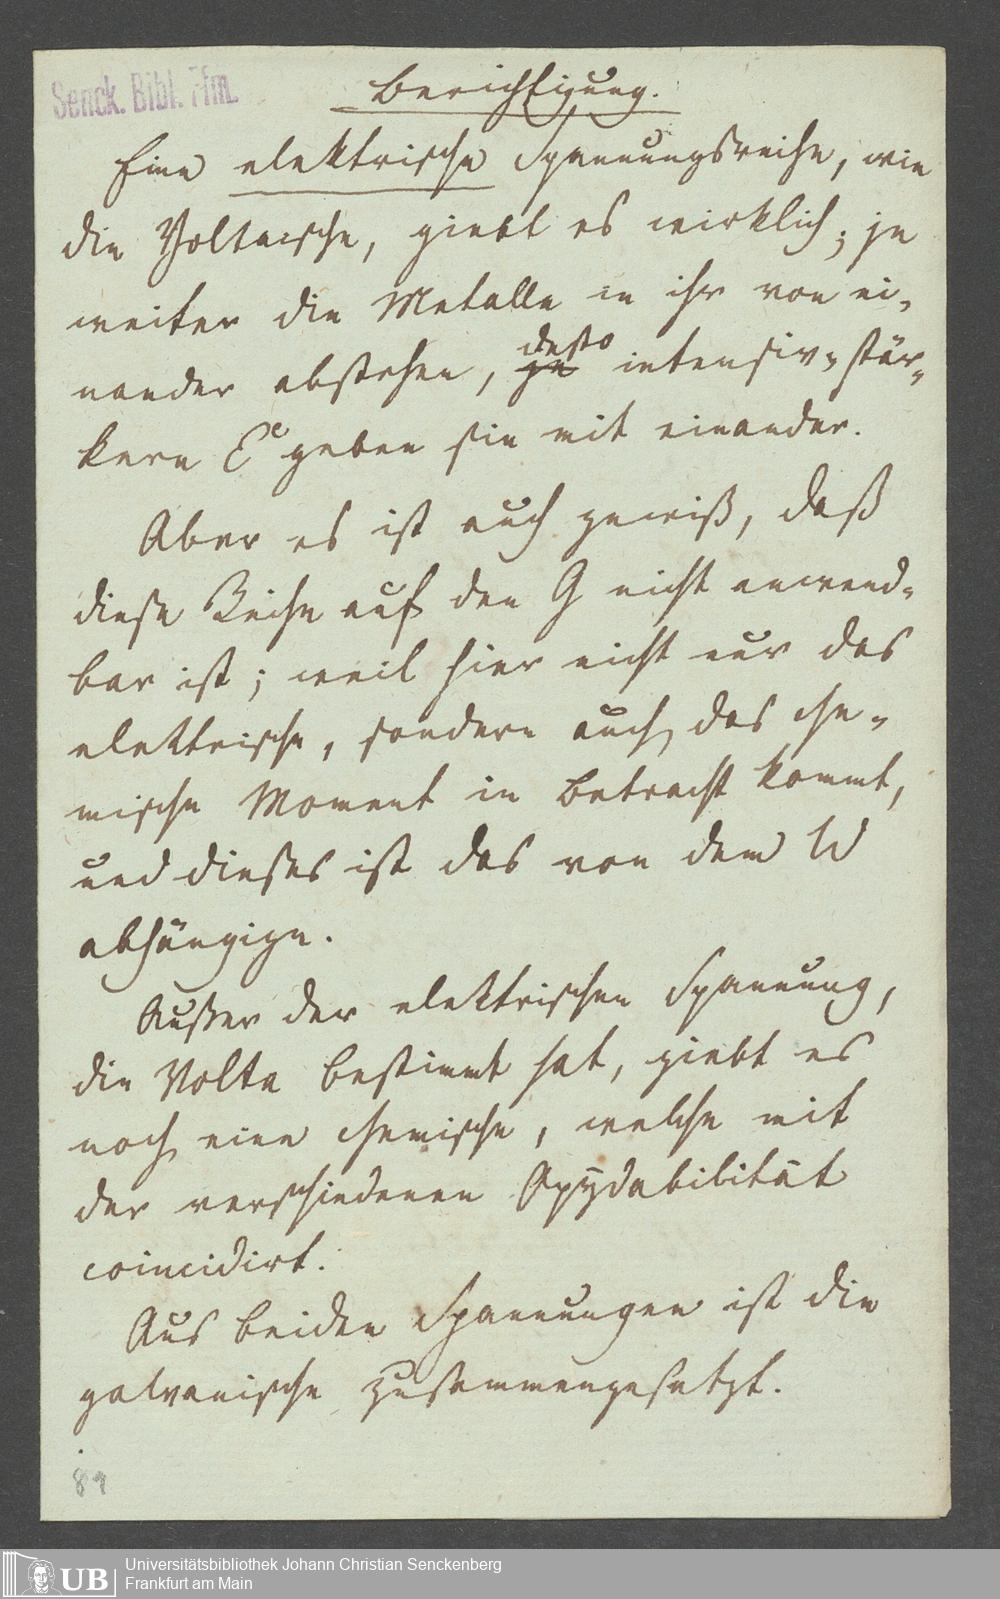 Senck. Bibl. Ffm.
Berichtigung.
Eine elektrische Spannungsreihe, wie
die Voltaische, giebt es wirklich; je
weiter die Metalle in ihr von ei-
nander abstehen, je desto intensiv-stär-
kern Ee geben sie mit einander.
Aber es ist auch gewiß, daß
diese Reihe auf den G nicht anwend-
bar ist; weil hier nicht nur das
elektrische, sondern auch das che-
mische Moment in Betracht kommt,
und dieses ist das von dem W
abhängige.
Außer der elektrischen Spannung,
die Volta bestimmt hat, giebt es
noch eine chemische, welche mit
der verschiedenen Oxydabilität
coincidirt.
Aus beiden Spannungen ist die
galvanische zusammengesetzt.
89
UB
Universitätsbibliothek Johann Christian Senckenberg
Frankfurt am Main